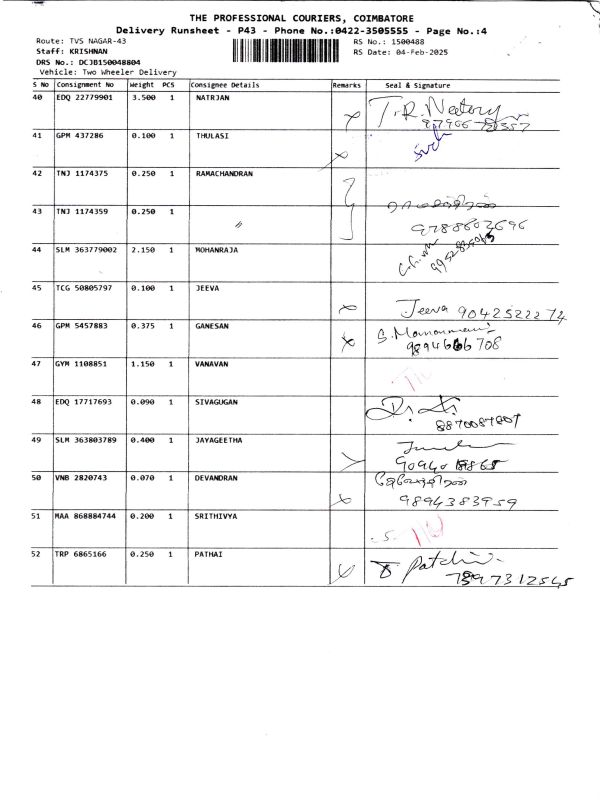 THE PROFESSIONAL COURIERS, COIMBATORE
Delivery Runsheet - P43 - Phone No.:0422-3505555 - Page No.:4
Route: TVS NAGAR-43 RS No.: 1500488
Staff: KRISHNAN RS Date: 04-Feb-2025
DRS No.: DCJB150048804
Vehicle: Two Wheeler Delivery
S No Consignment No Weight PCS Consignee Details Remarks Seal & Signature
40 EDQ 22779901 3.500 1 NATRJAN T.R.
41 GPM 437286 0.100 1 THULASI
42 TNJ 1174375 0.250 1 RAMACHANDRAN
43 TNJ 1174359 0.250 1 〃 9788602696
44 SLM 363779002 2.150 1 MOHANRAJA
45 TCG 50805797 0.100 1 JEEVA Jeeva 9042522274
46 GPM 5457883 0.375 1 GANESAN
47 GYM 1108851 1.150 1 VANAVAN
48 EDQ 17717693 0.090 1 SIVAGUGAN 8870087807
49 SLM 363803789 0.400 1 JAYAGEETHA
50 VNB 2820743 0.070 1 DEVANDRAN 9894383959
51 MAA 868884744 0.200 1 SRITHIVYA
52 TRP 6865166 0.250 1 PATHAI